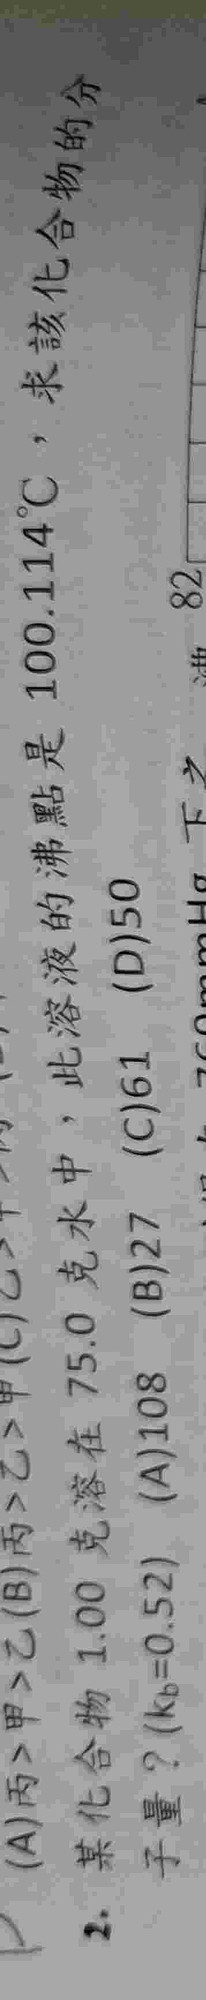 (A)丙>甲>乙(B)丙>乙>甲(C)乙>
2. 某化合物 1.00 克溶在 75.0 克水中，此溶液的沸點是 100.114℃，求該化合物的分
子量？(kb=0.52) (A)108 (B)27 (C)61 (D)50
760mmHg 下之
82